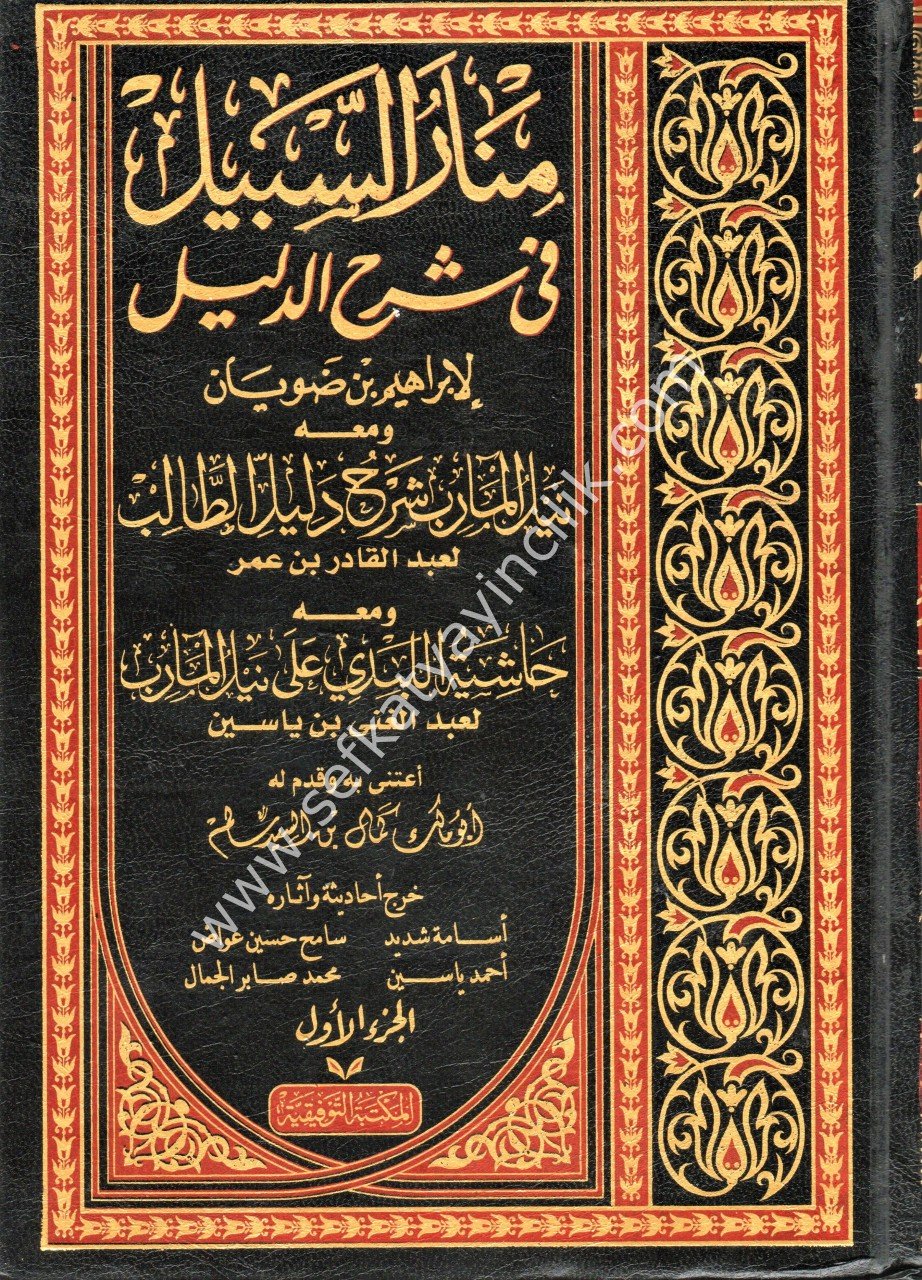 مَنَارُ السَّبِيْل
في شرح الدليل
لإبراهيم بن ضويان
ومعه
نَيْلُ المَآرِب شَرْحُ دَلِيْل الطَّالِبْ
لعبد القادر بن عمر
ومعه
حَاشِيَة اللَّبَدِي عَلَى نَيْل المَآرِبْ
لعبد الغني بن ياسين
أعتنى به وقدم له
أبو مالك كمال بن السيد سالم
خرج أحاديثة وآثاره
أسامة شديد سامح حسين عواض
أحمد ياسين محمد صابر الجمال
الجزء الأول
المكتبة التوفيقية
www.sefkatyayincilik.com